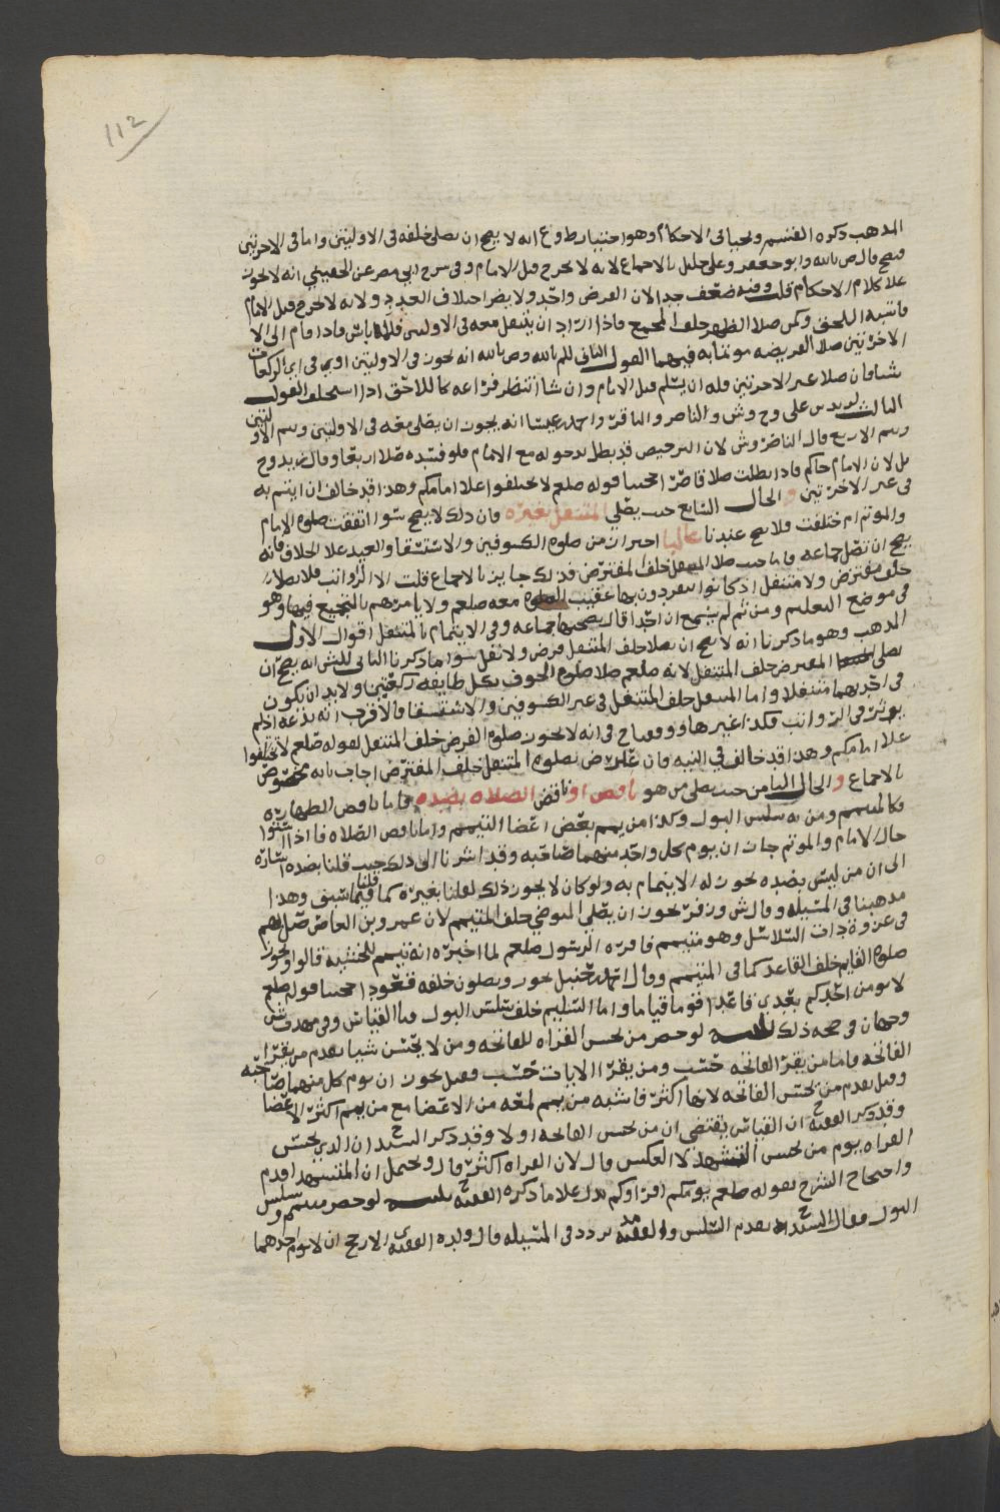 112
المذهب ذكره القسم ويحيى في الاحكام وهو اختيار ط و ع انه لا يصح ان يصلي خلفه في الاوليتين واما في الاخرتين
فيصح قال ص بالله وابو جعفر وعلي خليل بالاجماع لانه لا يخرج قبل الامام وفي شرح ابي مضر عن الحقيني انه لا يجوز
علا كلام الاحكام قلت وفيه ضعف جدا لان الفرض واحد ولا يضر اختلاف العدد ولانه لا يخرج قبل الامام
فاشبه اللاحق وكمن صلا الظهر خلف المجمع فاذا اراد ان يتنفل معه في الاوليتين فلا باس فاذا قام الى الا
الاخرتين صلا الفريضه موتما به فيهما القول الثاني للم بالله وص بالله انه يجوز في الاوليتين او في اي الركعات
شا فان صلا في الاخرتين فله ان يسلم قبل الامام وان شا انتظر فراغه كاللاحق اذا استخلف القول
الثالث لزيد بن علي وح وش والناصر والباقر واحمد بن عيسا انه يجوز ان يصلي معه في الاوليتين ويتم الاوليتين
ويتم الاربع قال الناصر وش لان الترخيص قد بطل بدخوله مع الامام فلو فسده صلا اربعا وقال زيد وح
بل لان الامام حاكم فاذا بطلت صلا قاصرا حجتنا قوله صلعم لا تختلفوا علا امامكم وهذا قد خالف ان ايتم به
في غير الاخرتين و الحال السابع حيث يصلي المتنفل بغيره فان ذلك لا يصح سوا اتفقت صلوه الامام
والموتم ام اختلفت فلا يصح عندنا غالبا احتراز من صلوه الكسوفين والاستسقا والعيد علا الخلاف فانه
يصح ان تصل جماعه فاما حيث صلا المتنفل خلف المفترض فذلك جايز بالاجماع قلت الا الرواتب فلا تصلا
خلف مفترض ولا متنفل اذ كانوا يتفردون بها عقيب الصلوه معه صلعم ولا يامرهم بالتجميع فيها وهو
في موضع التعليم ومن ثم لم يسمع ان احدا قال بصحتها جماعه وفي الايتمام بالمتنفل اقوال الاول
المذهب وهو ما ذكرنا انه لا يصح ان يصلا خلف المتنفل فرض ولا نفل سوا ما ذكرنا الثاني للش انه يصح ان
يصلي المفترض خلف المتنفل لانه صلعم صلا صلوه الخوف بكل طايفه ركعتين ولا بد ان يكون
في احديهما متنفلا واما المتنفل خلف المتنفل في غير الكسوفين والاستسقا فالاقرب انه بدعه اذ لم
يوثر في الرواتب فكذا غيرها وو في انه لا يجوز صلوه الفرض خلف المتنفل لقوله صلعم لا تختلفوا
علا امامكم وهذا قد خالف في النيه فان عارض بصلوه المتنفل خلف المفترض اجاب بانه مخصوص
بالاجماع و الحال الثامن حيث يصلي من هو ناقص او ناقض الصلاه بضده فاما ناقص الطهاره
فكالمتيمم ومن به سلس البول وكذا من يمم بعض اعضا التيمم واما ناقص الصلاه فاذا استوا
حال الامام والموتم جاز ان يوم كل واحد منهما صاحبه وقد اشرنا الى ذلك حيث قلنا بضده اشاره
الى ان من ليس بضده يجوز له الايتمام به ولو كان لا يجوز ذلك لقلنا بغيره كما قلنا فيما سبق وهذا
مذهبنا في المسيله وقال ش وزفر يجوز ان يصلي المتوضي خلف المتيمم لان عمرو بن العاص صل بهم
في غزوه ذات السلاسل وهو متيمم فاقره الرسول صلعم لما اخبره انه تيمم للخشيه قالوا ويجوز
صلوه القايم خلف القاعد كما في المتيمم وقال احمد بن حنبل يجوز ويصلون خلفه قعودا حجتنا قوله صلعم
لا يومن احدكم بعدي قاعدا قوما قياما واما السليم خلف سلس البول فبالقياس وفي مهذب ش
وجهان في صحه ذلك تنبيه لو حضر من يحسن القراه للفاتحه ومن لا يحسن شيا تقدم من يقرا
الفاتحه فاما من يقرا الفاتحه حسب ومن يقرا الايات حسب فقيل يجوز ان يوم كل منهما صاحبه
وقيل يقدم من يحسن الفاتحه لانها اكثر فاشبه من يمم لمعه من الاعضا مع من يمم اكثر الاعضا
وقد ذكر الفقيه ح ان القياس يقتضي ان من يحسن الفاتحه اولا وقد ذكر السيد ح ان الذي يحسن
القراه يوم من يحسن التشهد لا العكس قال لان القراه اكثر قال ويحتمل ان المتشهد اقدم
واحتجاج الشرح بقوله صلعم يومكم اقراوكم يدل علا ما ذكره الفقيه ح تنبيه لو حضر متيمم وسلس
البول فقال السيد ح يقدم السلس والفقيه مد تردد في المسيله قال ولده الفقيه ى الارجح ان لا يوم احدهما